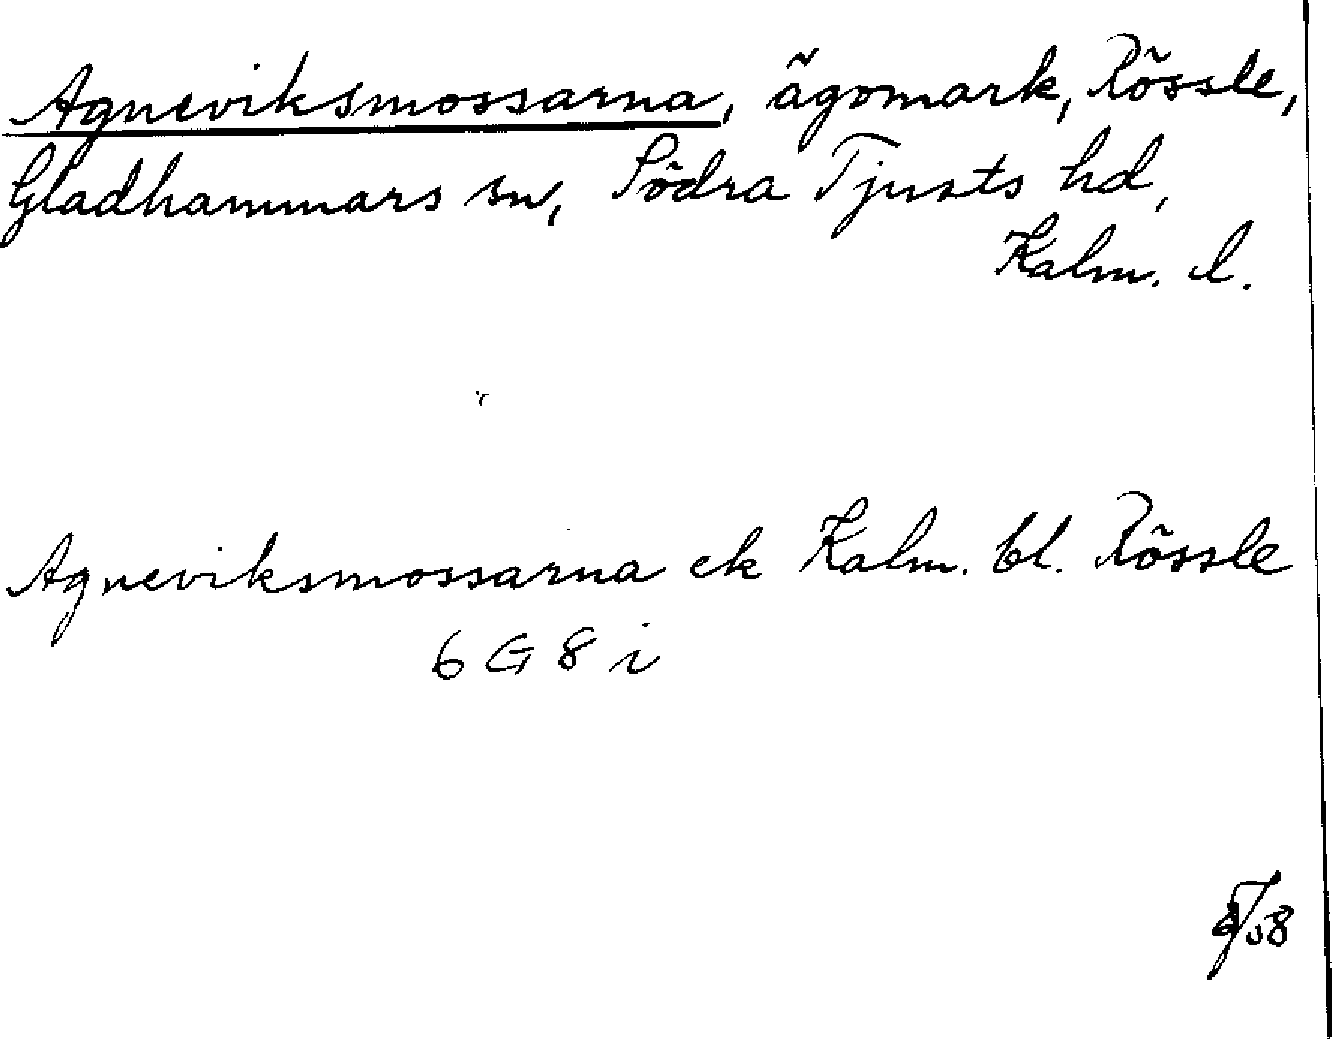 Agneviksmossarna, ägomark, Rössle,
Gladhammars sn, Södra Tjusts hd,
Kalm. l.
Agneviksmossarna ek Kalm. bl. Rössle
6 G 8 i